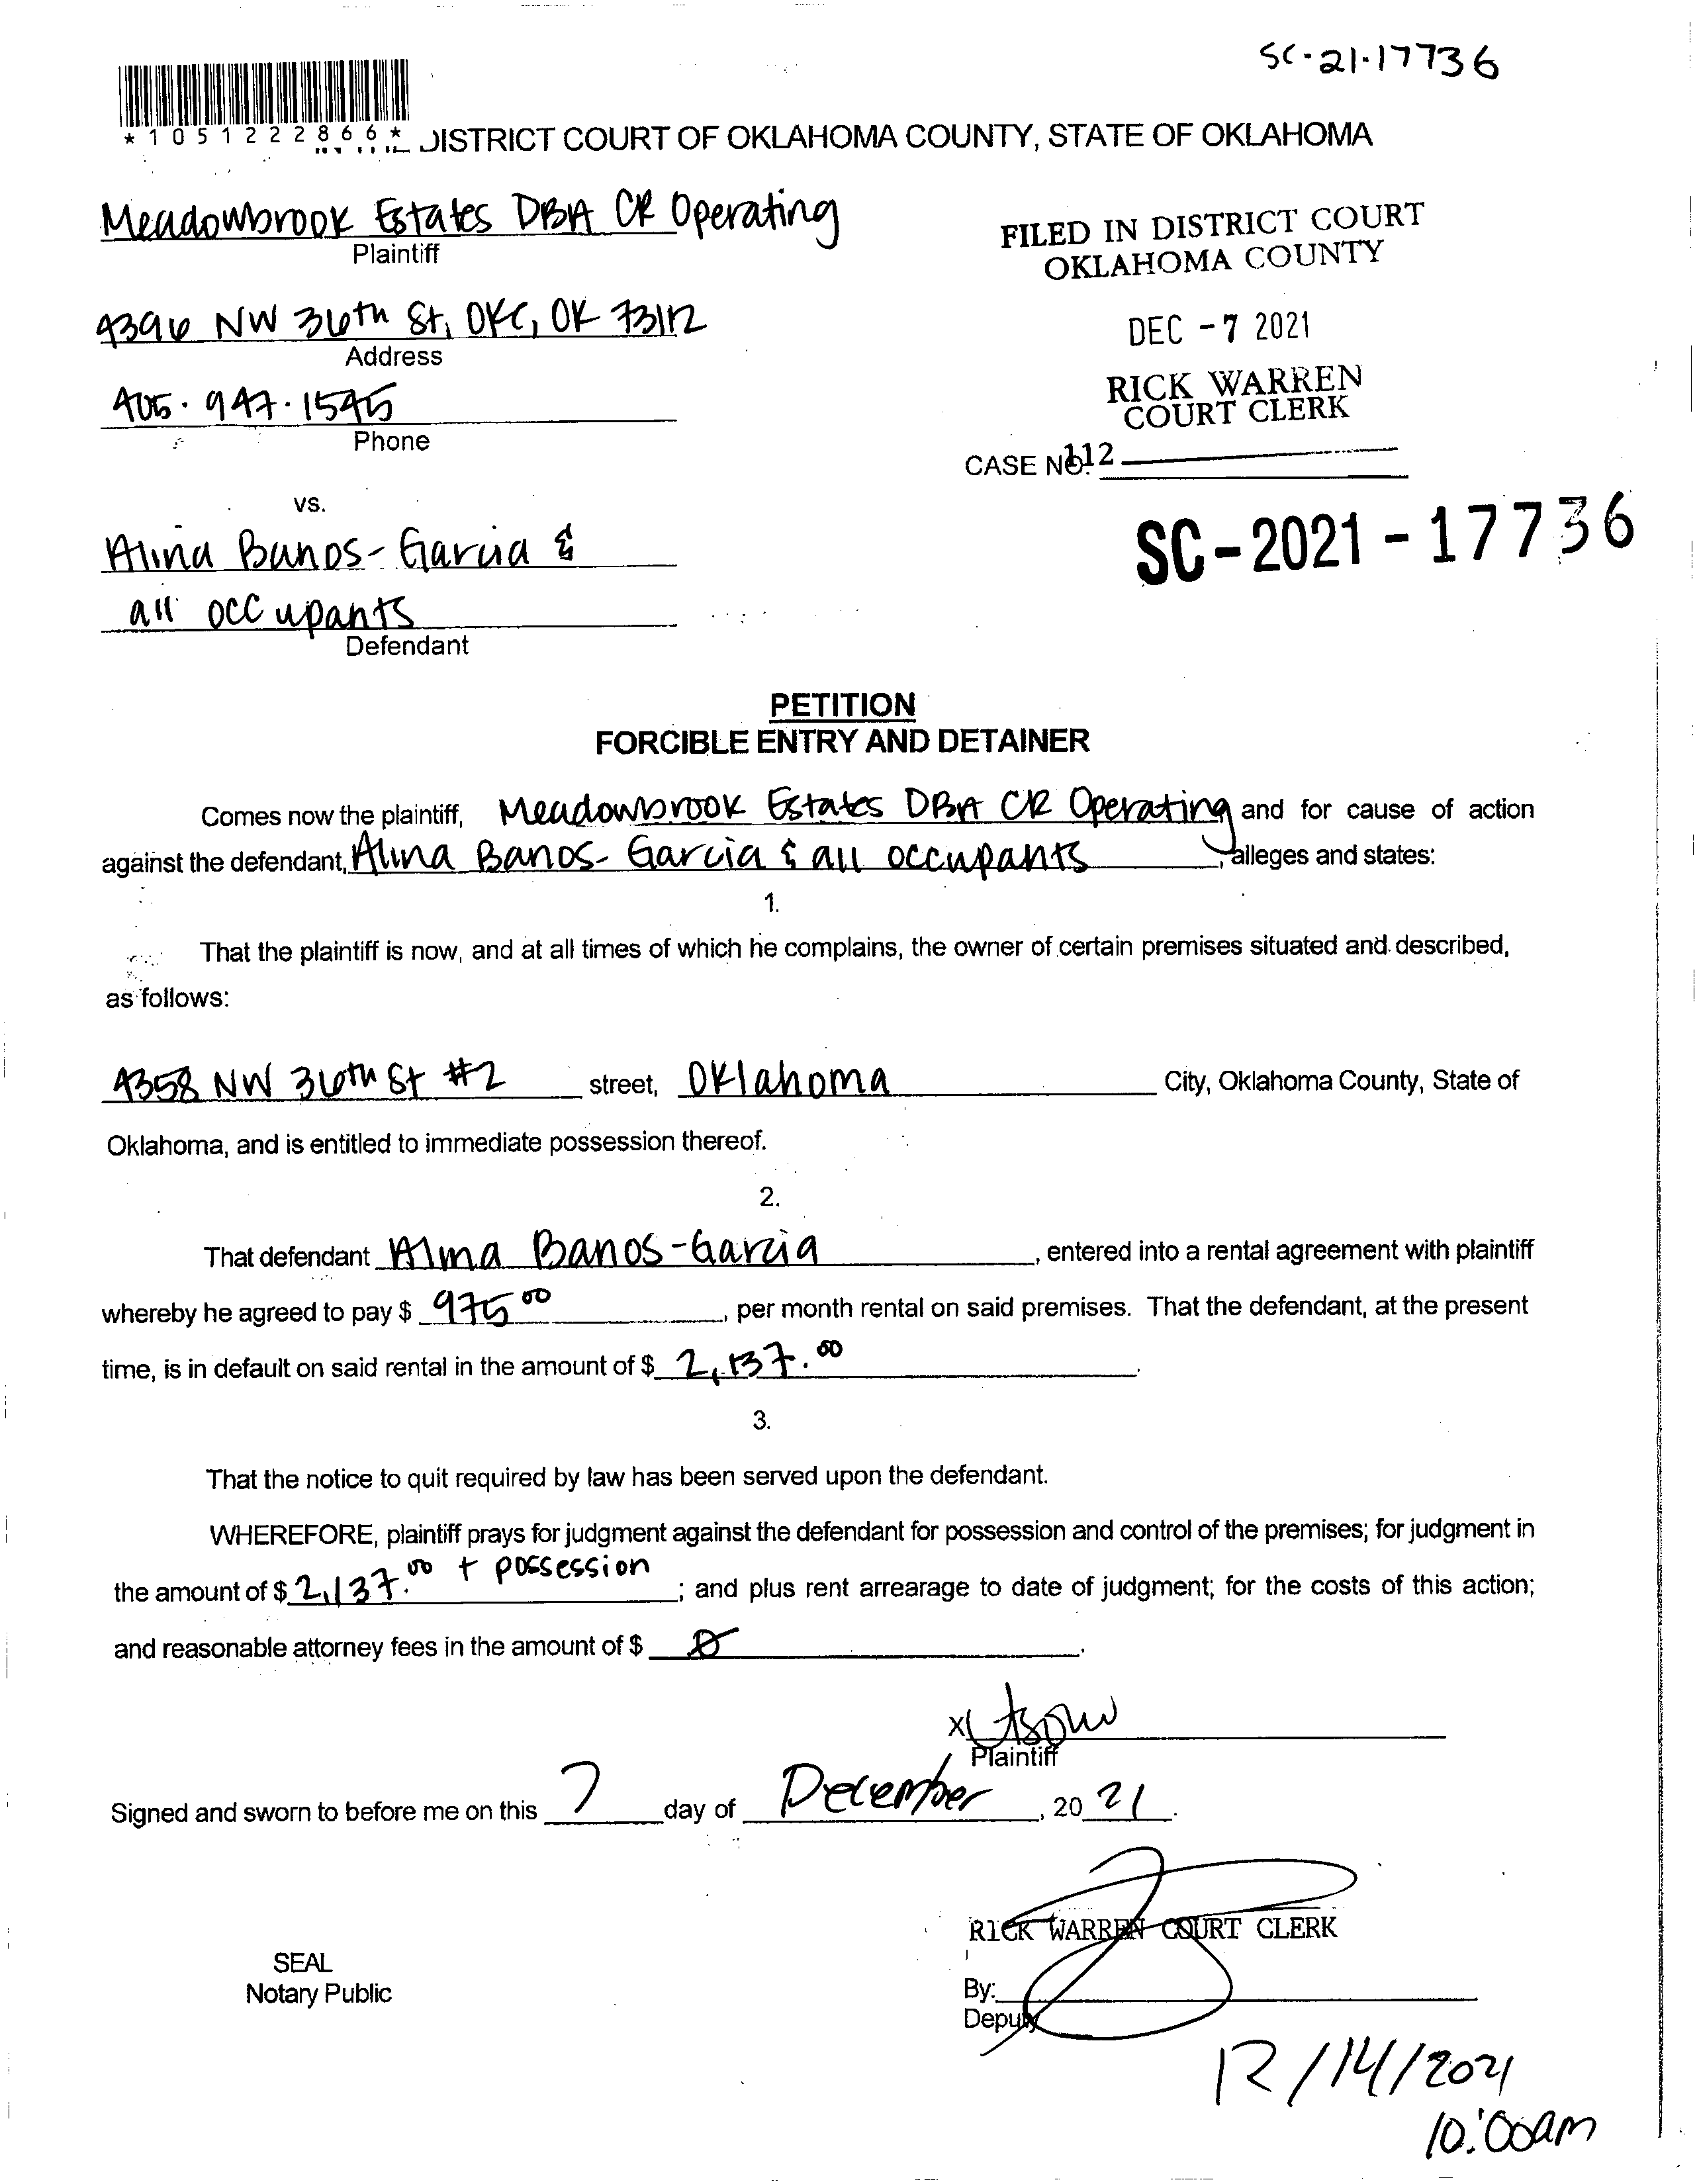 SC-21-17736
*1051222866*
DISTRICT COURT OF OKLAHOMA COUNTY, STATE OF OKLAHOMA
Meadowbrook Estates DBA CR Operating
Plaintiff
FILED IN DISTRICT COURT
OKLAHOMA COUNTY
4396 NW 36th St, OKC, OK 73112
Address
DEC -7 2021
405-947-1545
Phone
RICK WARREN
COURT CLERK
CASE NO. 112
vs.
SC-2021-17736
Alina Banos-Garcia &
all occupants
Defendant
PETITION
FORCIBLE ENTRY AND DETAINER
Comes now the plaintiff, Meadowbrook Estates DBA CR Operating and for cause of action
against the defendant, Alina Banos-Garcia & all occupants, alleges and states:
1.
That the plaintiff is now, and at all times of which he complains, the owner of certain premises situated and described,
as follows:
4358 NW 36th St #2 street, Oklahoma City, Oklahoma County, State of
Oklahoma, and is entitled to immediate possession thereof.
2.
That defendant Alina Banos-Garcia, entered into a rental agreement with plaintiff
whereby he agreed to pay $ 975 00, per month rental on said premises. That the defendant, at the present
time, is in default on said rental in the amount of $ 2,137.00.
3.
That the notice to quit required by law has been served upon the defendant.
WHEREFORE, plaintiff prays for judgment against the defendant for possession and control of the premises; for judgment in
the amount of $ 2,137.00 + possession; and plus rent arrearage to date of judgment; for the costs of this action;
and reasonable attorney fees in the amount of $ 0.
X
Plaintiff
Signed and sworn to before me on this 7 day of December, 2021.
RICK WARREN COURT CLERK
SEAL
Notary Public
By:
Deputy
12/14/2021
10:00am